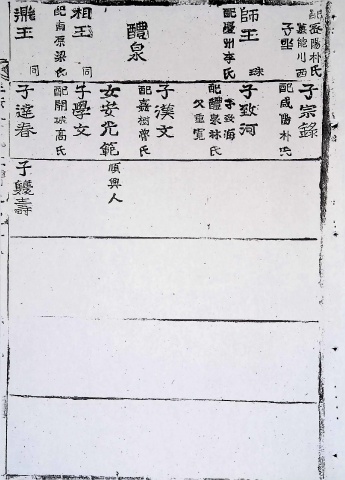 配密陽朴氏
子坐
師王 珠
配慶州李氏
醴泉
相王 同
配南原梁氏
王 同
子宗錄
配咸陽朴氏
子致河
子致海
配醴泉林氏
父重寬
子漢文
配嘉樹 氏
女安光範
順興人
子學文
配開城高氏
子達春
子 壽